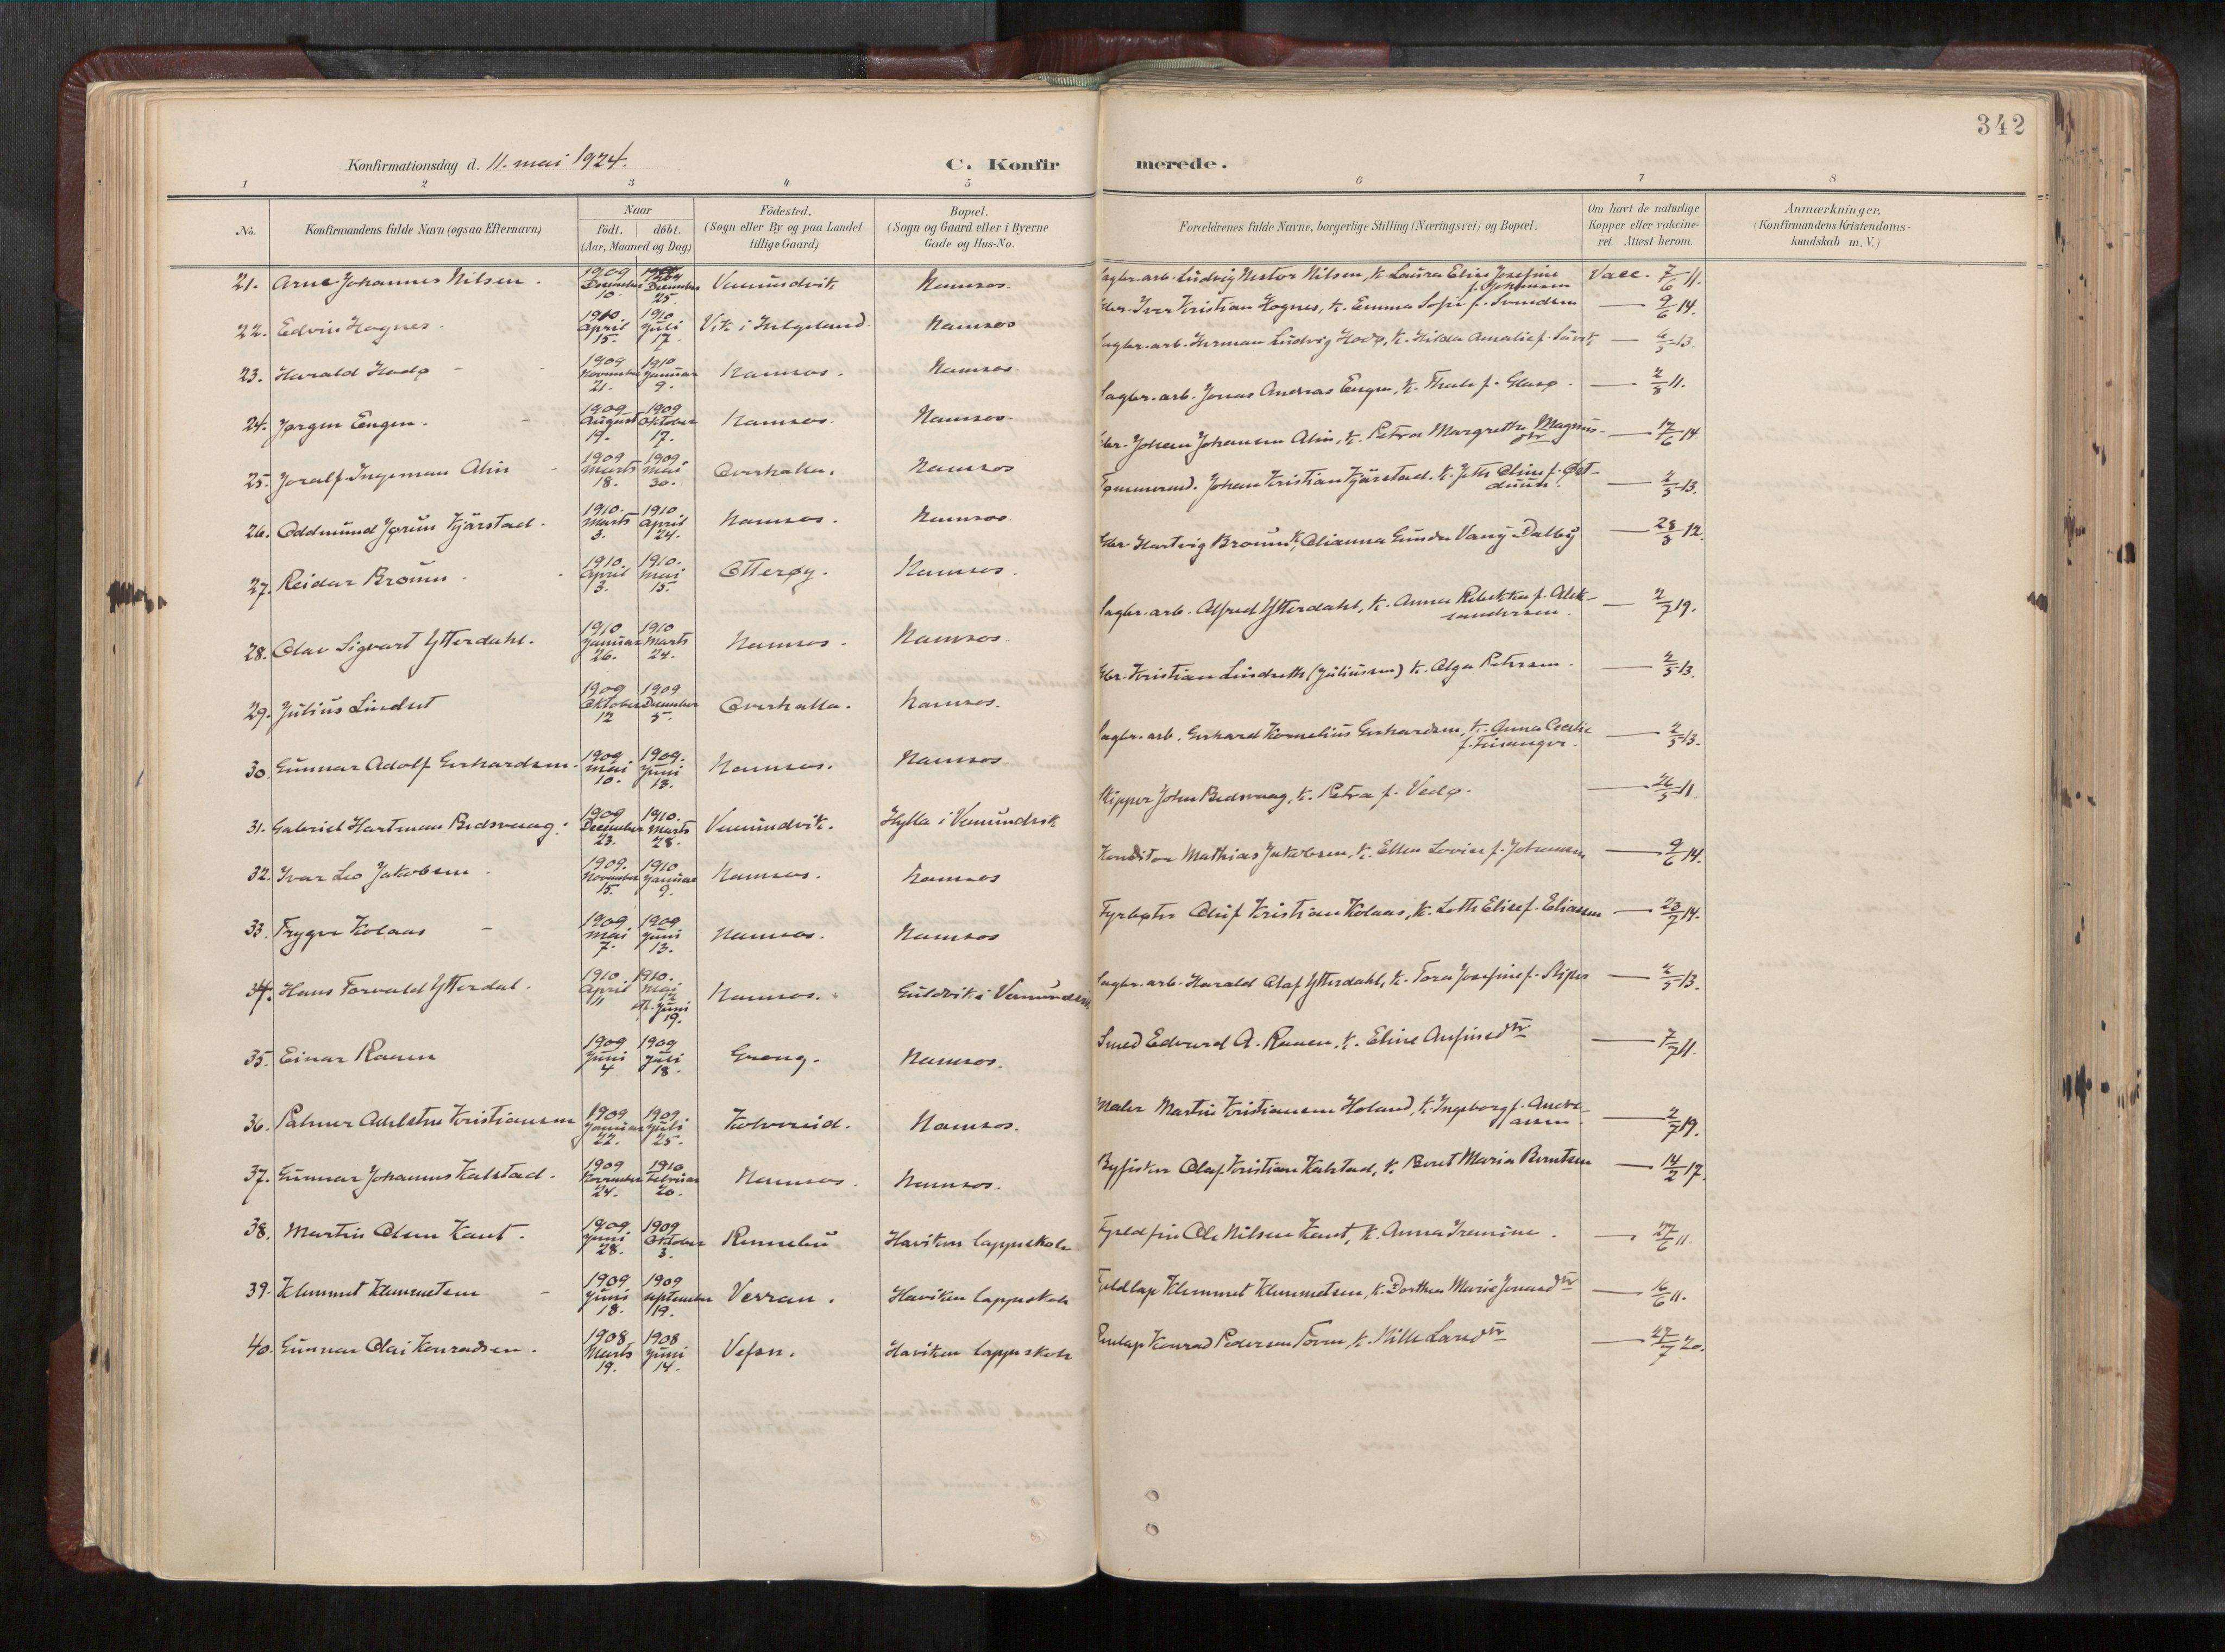 342
Konfirmationsdag d. 11. mai 1924.
C. Konfirmerede.
1 2 3 4 5 6 7 8
No. Konfirmandens fulde Navn (ogsaa Efternavn) Naar födt. döbt. (Aar, Maaned og Dag) Födested. (Sogn eller By og paa Landet tillige Gaard) Bopæl. (Sogn og Gaard eller i Byerne Gade og Hus-No. Forældrenes fulde Navne, borgerlige Stilling (Næringsvei) og Bopæl. Om havt de naturlige Kopper eller vakcineret. Attest herom. Anmærkninger, (Konfirmandens Kristendomskundskab m. V.)
21. Arne Johannes Nilsen. 1909 December 10. 1909 December 25. Vemundvik Namsos. Sagbr. arb. Ludvig Nestor Nilsen, k. Laura Elise Josefine f. Johansen Vacc. 7/6 11.
22. Edvin Hognes. 1910 April 15. 1910 Juli 17. Vik i Helgeland. Namsos Iver Kristian Hognes, k. Emma Sofie f. Svendsen — 9/6 14.
23. Harald Hodø - 1909 November 21. 1910 Januar 9. Namsos. Namsos Sagbr. arb. Herman Ludvig Hodø, k. Hilda Amalie f. — 2/5 13.
24. Jørgen Engen. - 1909 August 19. 1909 Oktober 17. Namsos. Namsos. Sagbr. arb. Jonas Andreas Engen, k. f. Glasø. — 2/3 11.
25. Joralf Ingeman Alin - 1909 Marts 18. 1909 Mai 30. Overhalla. Namsos Johan Johansen Alin, k. Petra Margrethe Magnusdtr — 17/6 14.
26. Oddmund Jørun Kjärstad. 1910. Marts 3. 1910 April 24. Namsos. Namsos. Tømmermd. Johan Kristian Kjärstad. k. Oline f. Østduun. — 2/5 13.
27. Reidar Broum. 1910. April 3. 1910. Mai 15. Otterøy. Namsos. Hartvig Brouum, k. Olianna Gunda Vany Dalby — 28/5 12.
28. Olav Sigvart Ytterdahl. 1910 Januar 26. 1910 Marts 24. Namsos. Namsos. Sagbr. arb. Alfred Ytterdahl, k. Anna Rebekka f. Aleksandersen. — 2/7 19.
29. Julius Lindset 1909 Oktober 12 1909 December 5. Overhalla. Namsos. Kristian Lindseth (Juliussen) k. Olga Petersen. — 2/5 13.
30. Gunnar Adolf Gerhardsen. 1909. Mai 10. 1909. Juni 13. Namsos. Namsos Sagbr. arb. Gerhard Kornelius Gerhardsen, k. Anna Cecilie f. Finanger. — 2/5 13.
31. Gabriel Hartman Bedsvaag. 1909 December 23. 1910. Marts 28. Vemundvik. Hylla i Vemundvik Skipper John Bedsvaag, k. Petra f. Vedø. — 26/5 11.
32. Ivar Leo Jakobsen. 1909. November 15. 1910 Januar 9. Namsos. Namsos Konditor Mathias Jakobsen, k. Ellen Lovise f. Johansen — 9/6 14.
33. Trygve Kolaas - 1909 Mai 7. 1909 Juni 13. Namsos. Namsos Fyrbøter Oluf Kristian Kolaas, k. Elise f. Eliassen — 23/7 14.
34. Hans Torvald Ytterdal. 1910. April 11 1910. Mai 12 Juni 19. Namsos. Guldvik i Vemundvik Sagbr. arb. Harald Olaf Ytterdahl, k. Tora Josefine f. — 2/5 13.
35. Einar Raaen 1909 Juni 4 1909 Juli 18. Grong. Namsos. Smed Edvard A. Raaen, k. Eline Anfinsdtr — 7/7 11.
36. Palmer Adelsten Kristiansen 1909 Januar 22. 1909. Juli 25. Kolvereid. Namsos. Maler Martin Kristiansen Holand, k. Ingeborg f. Andreassen. — 2/7 19.
37. Gunnar Johannes Kalstad. 1909 November 24. 1910 Februar 20. Namsos. Namsos. Byfisker Olaf Kristian Kalstad, k. Beret Maria Berntsen — 14/2 17.
38. Martin Olsen Kant. 1909. Juni 28. 1909 Oktober 3. Rennebu Haviken lappeskole Ole Nilsen Kant, k. Anna — 27/6 11.
39. Klemmet Klemmetsen - 1909. Juni 18. 1909 September 19. Verran. Haviken lappeskole Fjeldlap Klemmet Klemmetsen, k. Dorthea Marie Jonasdtr — 16/6 11.
40. Gunnar Olai Konradsen. 1908. Marts 19. 1908 Juni 14. Vefsn. Haviken lappeskole Konrad Pedersen Toven, k. Nilla Larsdtr — 27/7 20.